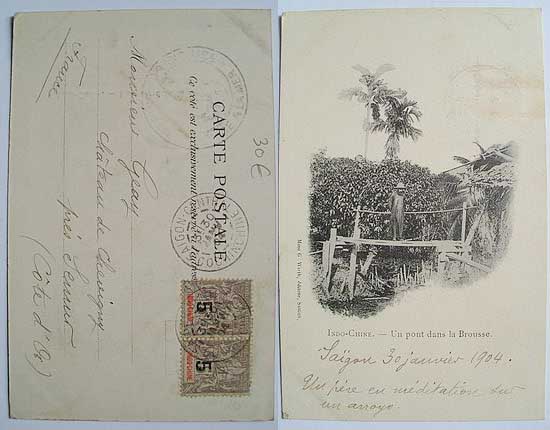 CARTE POSTALE
Ce côté est exclusivement réservé à l'adresse
30€
Monsieur Geay
Château de Chevigny
près Semur
(Côte d'Or)
France
5
5
INDO-CHINE. — Un pont dans la Brousse.
Saïgon 30 janvier 1904.
Un père en méditation sur
un arroyo.